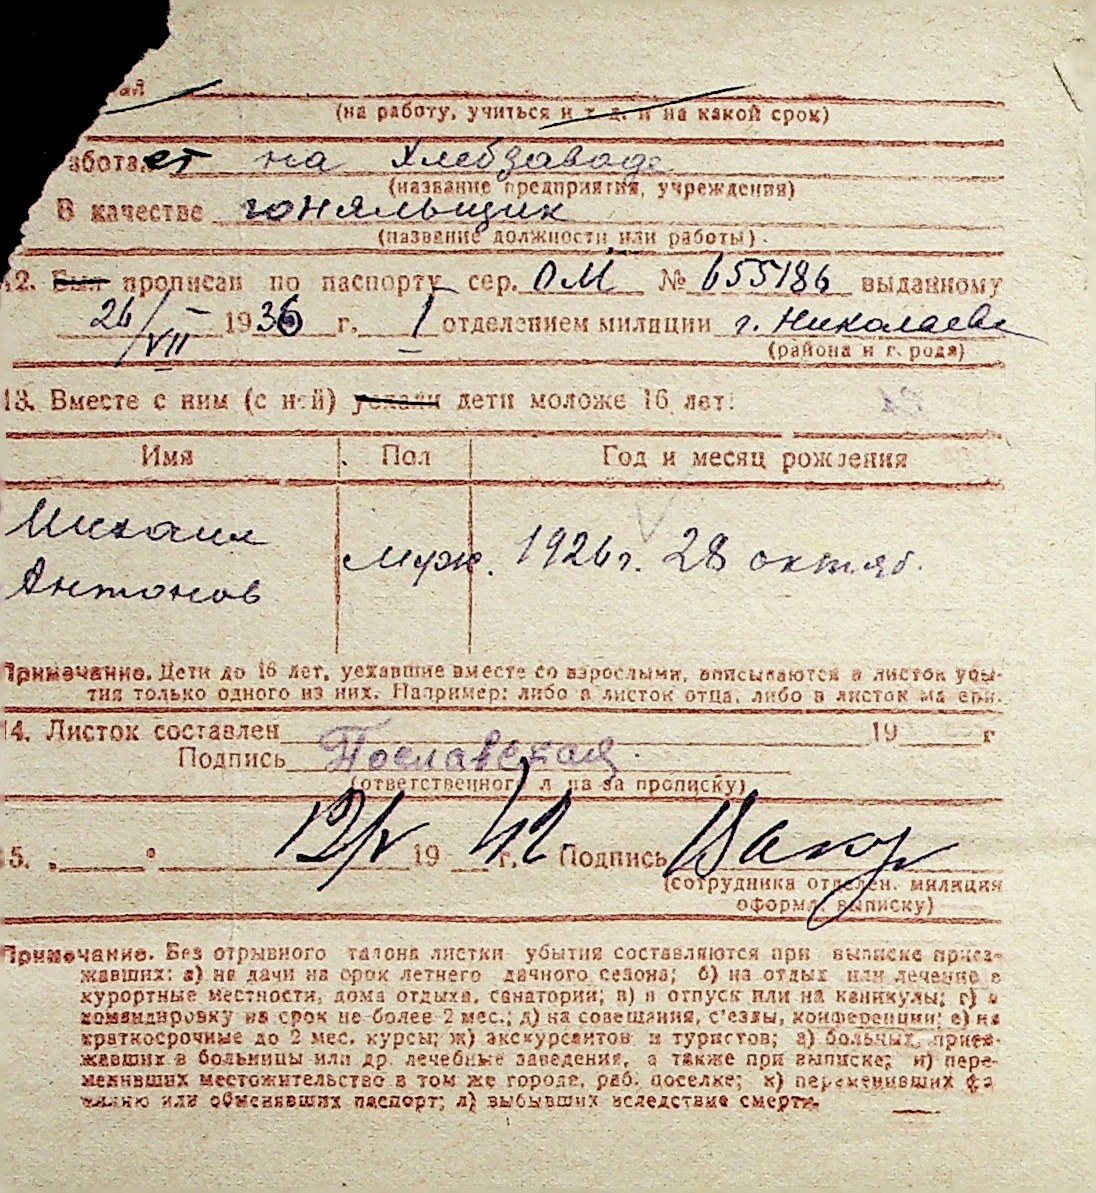 (на работу, учиться и т. д. и на какой срок)
работает на Хлебзаводе
(название предприятия, учреждения)
В качестве
(название должности или работы)
12. Был прописан по паспорту сер. ОМ № 655186 выданному
26/VII 1936 г. I отделением милиции г. Николаева
(района и города)
13. Вместе с ним (с ней) уехали дети моложе 16 лет:
Имя Пол Год и месяц рождения
Михаил
муж. 1926 г. 28 октяб.
Антонов
Примечание. Дети до 16 лет, уехавшие вместе со взрослыми, вписываются в листок убы-
тия только одного из них. Например: либо в листок отца, либо в листок матери.
14. Листок составлен 19 г
Подпись Пославская
(ответственного лица за прописку)
15. „ " 12/V 19 42 г. Подпись
(сотрудника отделен. милиции
оформ. выписку)
Примечание. Без отрывного талона листки убытия составляются при выписке приез-
жавших: а) на дачи на срок летнего дачного сезона; б) на отдых или лечение в
курортные местности, дома отдыха, санатории; в) в отпуск или на каникулы; г) в
командировку на срок не более 2 мес.; д) на совещания, с'езды, конференции; е) на
краткосрочные до 2 мес. курсы; ж) экскурсантов и туристов; з) больных, приез-
жавших в больницы или др. лечебные заведения, а также при выписке; и) пере-
менивших местожительство в том же городе, раб. поселке; к) переменивших фа
милию или обменявших паспорт; л) выбывших вследствие смерти.